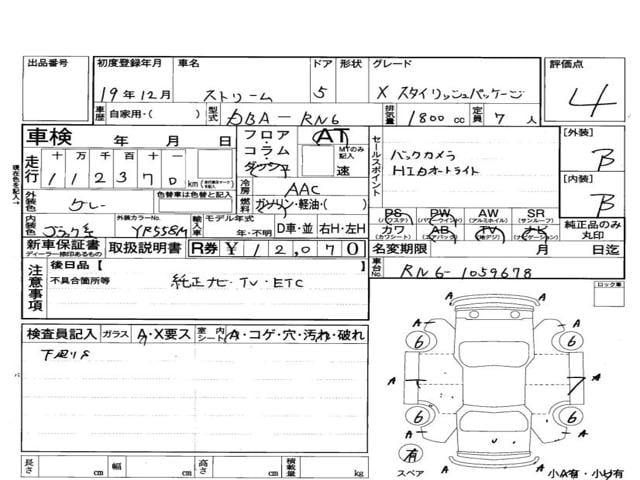 出品番号 初度登録年月 車名 ドア 形状 グレード 評価点
19年12月 ストリーム 5 X スタイリッシュパッケージ 4
車歴 自家用・( ) 型式 DBA-RN6 排気量 1800 cc 定員 7 人
車検 年 月 日 フロア・コラム・ダッシュ AT MTのみ記入 速
走行 十 万 千 百 十 一
1 1 2 3 7 0 km
冷房 AAC
燃料 ガソリン・軽油・( )
セールスポイント バックカメラ
HIDオートライト
[外装] B
[内装] B
外装色 グレー 色替車は色替と記入
現在色を記入
内装色 ブラック系 外装カラーNo. YR558M 輸入車 モデル年式 年・不明 D車・並 右H・左H
PS (パワステ) PW (パワーウインド) AW (アルミホイル) SR (サンルーフ)
カワ (カワシート) AB (エアバック) TV (地デジ) ナビ (ナビゲーション)
純正品のみ丸印
新車保証書 ディーラー捺印あるもの 取扱説明書 R券 ¥12,070 名変期限 月 日迄
車台No. RN6-1059678
注意事項 後日品 [ ]
不具合箇所等 純正ナビ・TV・ETC
ロック車
検査員記入 ガラス A・X要ス 室内シート A・コゲ・穴・汚れ・破れ
下廻りS
A A A
6 6
A A A
6 6
A A
有
スペア A 小A有・小U有
長さ cm 幅 cm 高さ cm 積載量 kg